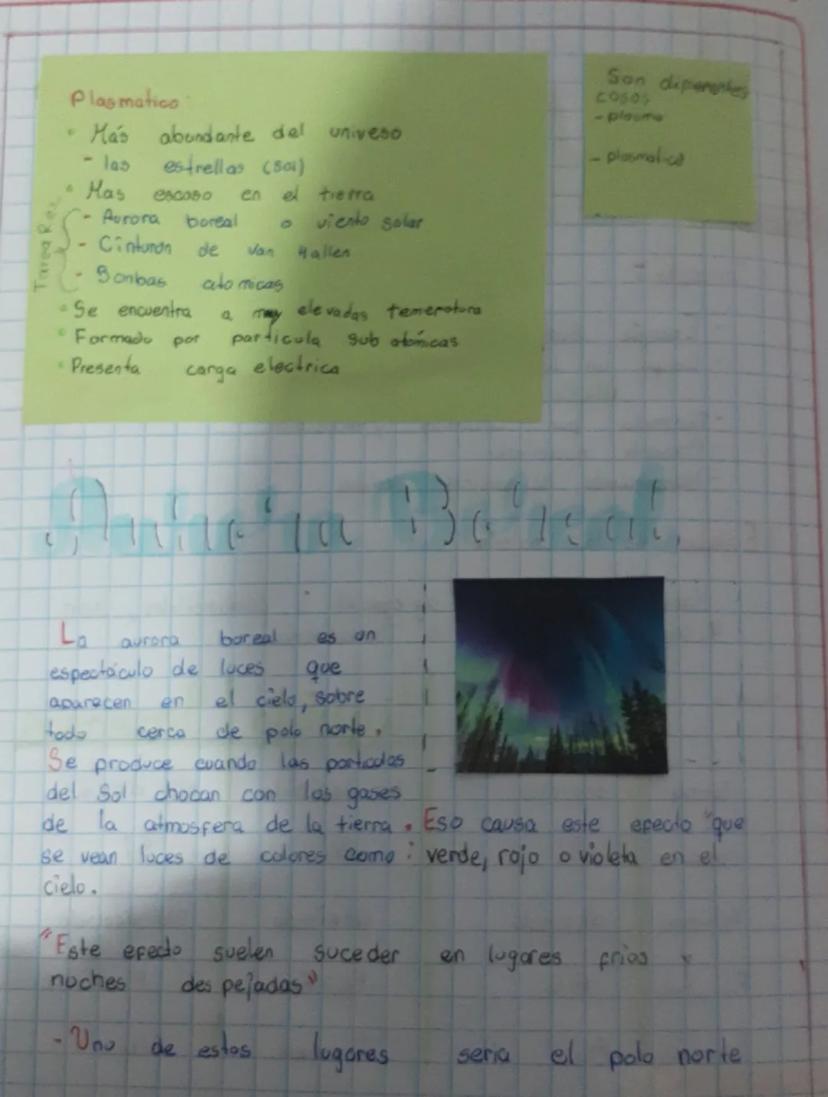 Plasmatico:
• Más abundante del univeso
- las estrellas (sol)
• Mas escaso en el tierra
- Aurora boreal o viento solar
- Cinturon de Van Hallen
- Bonbas atomicas
• Se encuentra a muy elevadas temeratura
• Formado por particula sub atómicas
• Presenta carga electrica
Tarea
Son diferentes
cosas
- plasma
- plasmatico
Aurora Boreal
La aurora boreal es un
espectáculo de luces que
aparecen en el cielo, sobre
todo cerca de polo norte.
Se produce cuando las particulas
del Sol chocan con los gases
de la atmosfera de la tierra. Eso causa este efecto "que
se vean luces de colores como: verde, rojo o violeta en el
cielo.
"Este efecto suelen suceder en lugares frios y
noches despejadas"
- Uno de estos lugares seria el polo norte